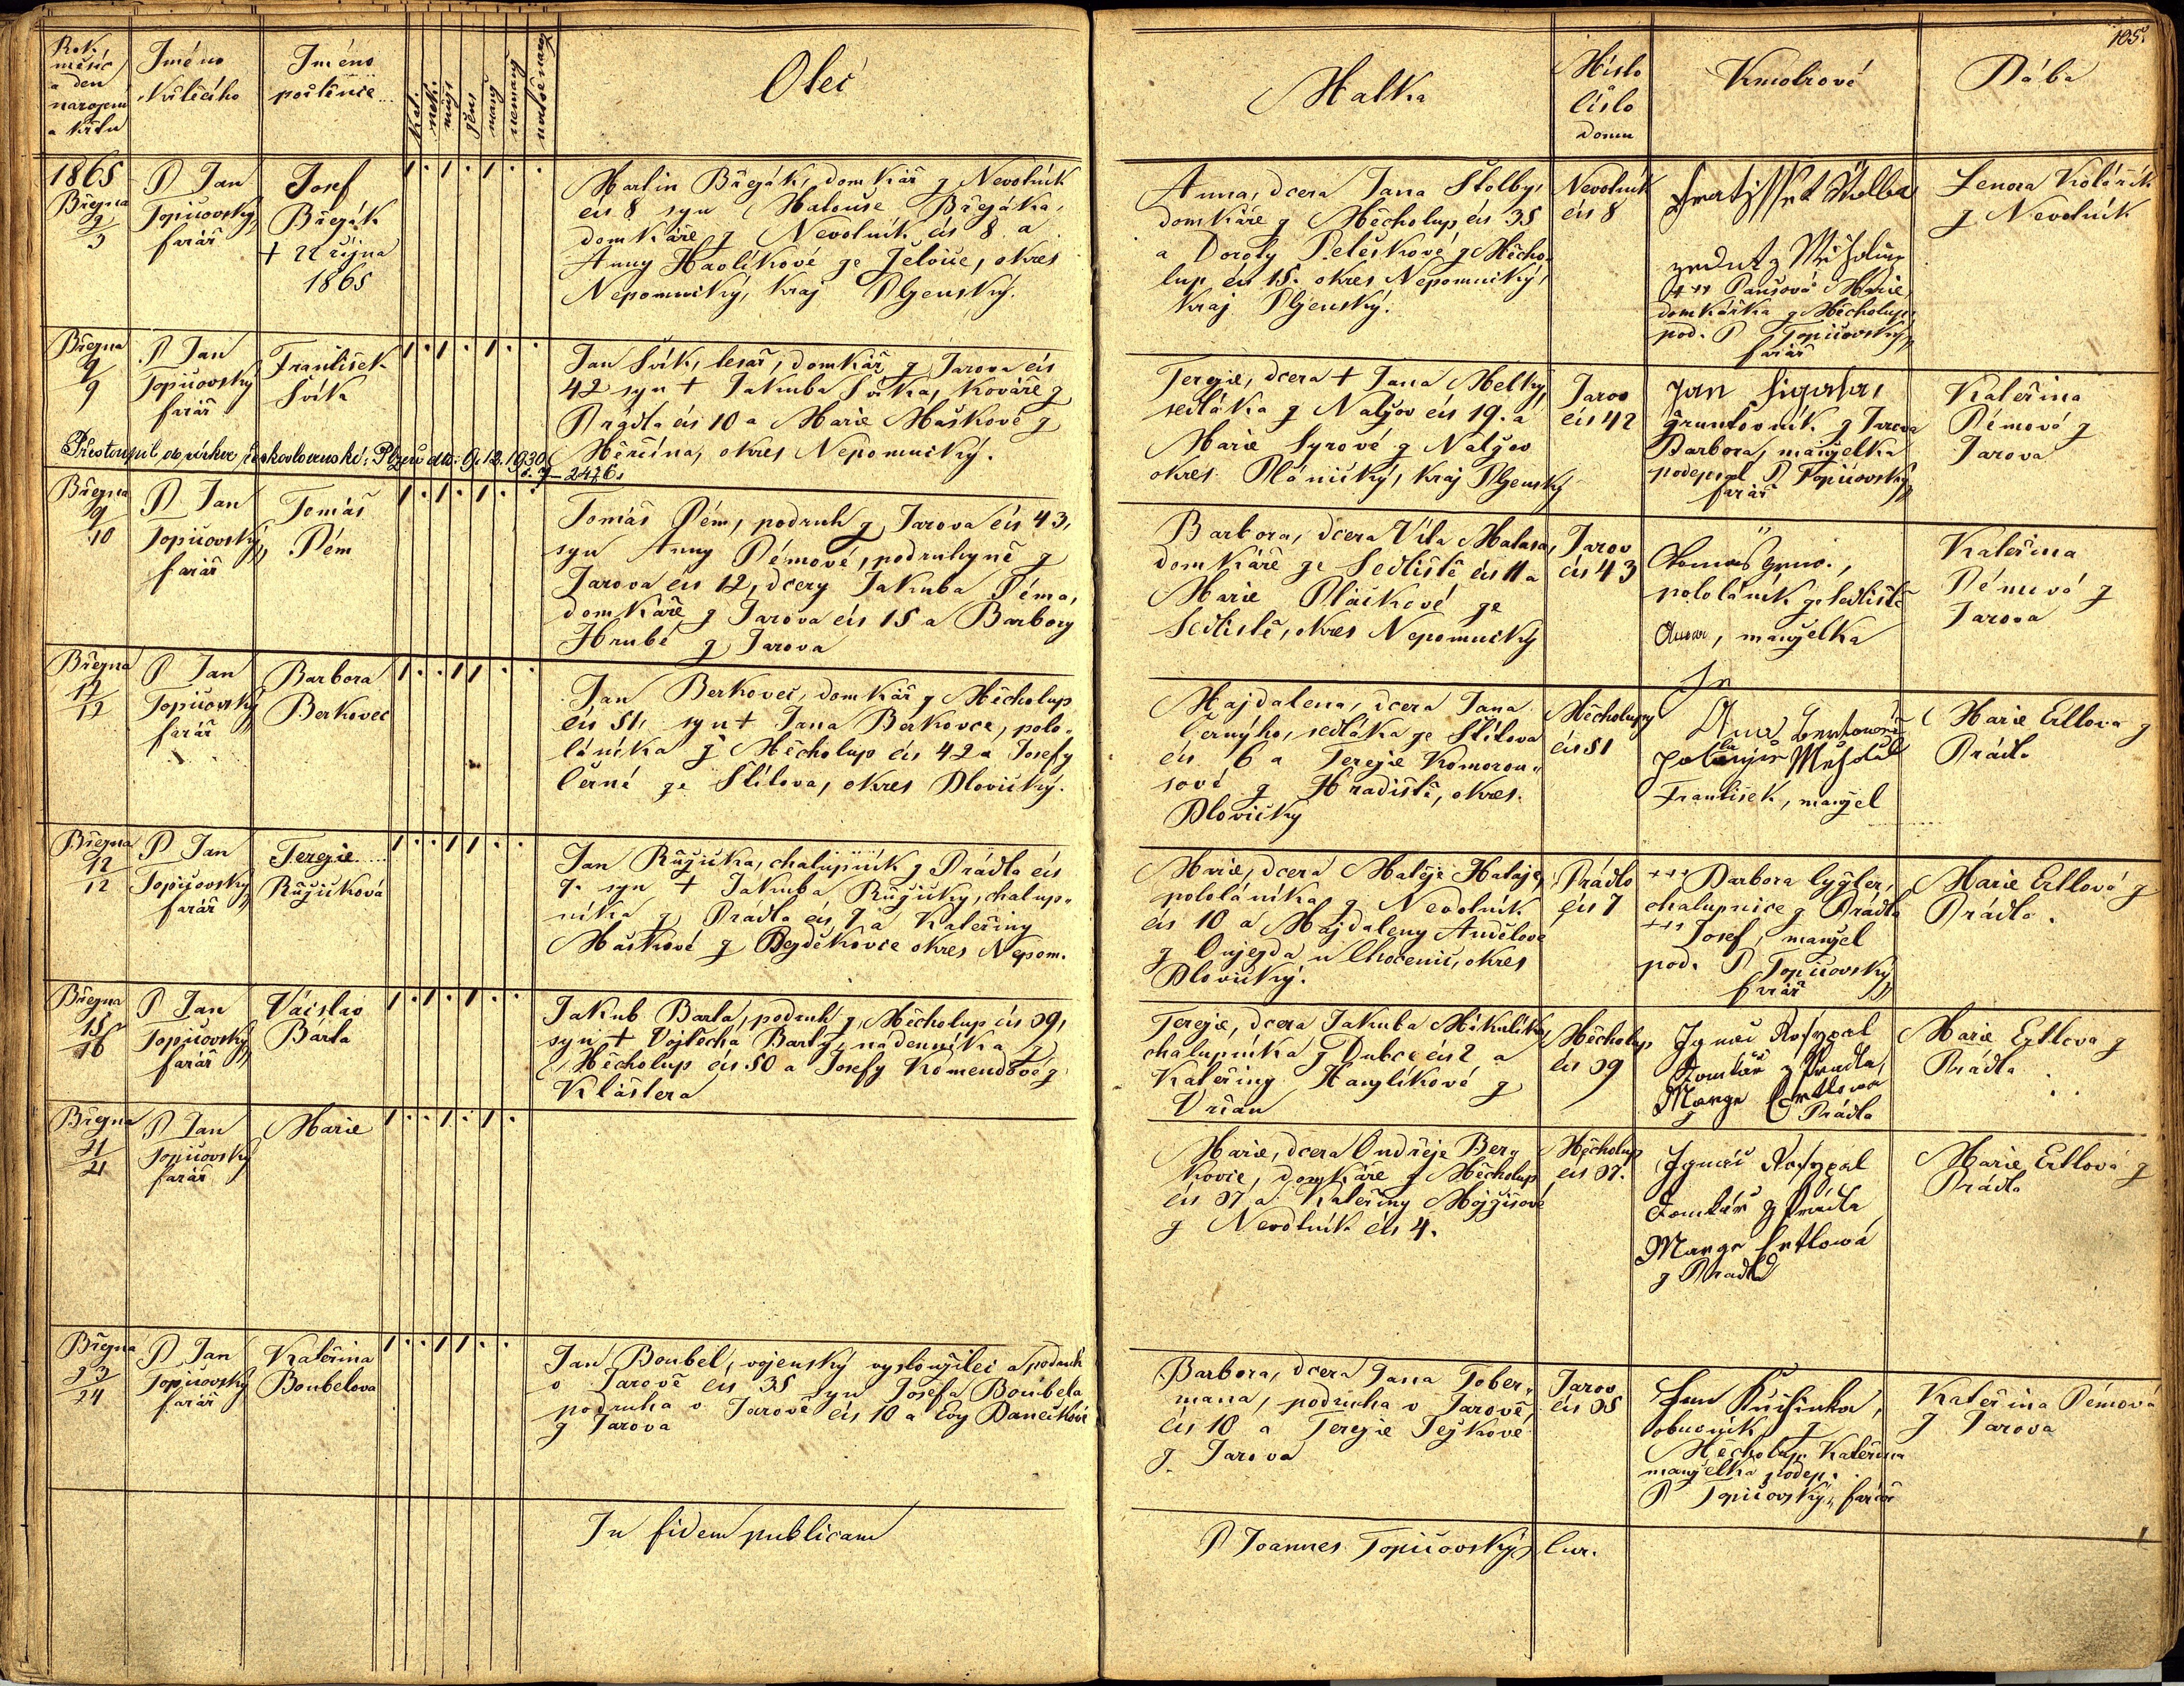 Rok,
měsíc
a den
narození
a křtu
Jméno
Křtícího
Jméno
pokřtěnce
Kat.
nek.
mužs
žens
manž
nemanž
Otec
Matka
Místo
číslo
domu
Kmotrové
Bába
105.
1865
Března
3
P Jan
Topičovský,
farář
Josef
Břeják
+ 22 října
1865
Martin Břeják, domkář z Nevotník
čís 8 syn Matouše Břejáka,
domkáře z Nevotník čís 8 a
Anny Havlíkové ze Želvice, okres
Nepomucký, kraj Plzenský.
Anna, dcera Jana Štolby,
domkáře z Měcholup čís 35
a Doroty Peleškové z Měcho-
lup čís 15. okres Nepomucký,
kraj Plzenský.
Nevotník
čís 8
Štolba
+++ Marie,
domkářka z Měcholup,
pod. P Topičovský,
farář
Lenora Kolářík
z Nevotník
Března
9
9
P Jan
Topičovský
farář
František
Svík
Jan Svík, tesař, domkář z Jarova čís
42 syn + Jakuba Svíka, kováře z
Prádla čís 10 a Marie Maškové z
Měrčína, okres Nepomucký.
Přestoupil do církve československé: Plzeň dto: 9. 12. 1930.
č. j. 2476.
Terezie, dcera + Jana Melky,
sedláka z Nalžov čís 19. a
Marie Syrové z Nalžov
okres Plánický, kraj Plzenský
Jarov
čís 42
Jan
gruntovník z Jarova
Barbora, manželka
podepsal P Topičovský,
farář
Kateřina
Démová z
Jarova
Března
9
10
P Jan
Topičovský,
farář
Tomáš
Dém
Tomáš Dém, podruh z Jarova čís 43,
syn Anny Démové, podruhyně z
Jarova čís 12, dcery Jakuba Déma,
domkáře z Jarova čís 15 a Barbory
Hrubé z Jarova
Barbora, dcera Víta Matasa,
domkáře ze Sedliště čís 11 a
Marie Ptáčkové ze
Sedliště, okres Nepomucký
Jarov
čís 43
Tomáš
pololáník ze Sedliště
Anna, manželka
Kateřina
Démová z
Jarova
Března
12
12
P Jan
Topičovský
farář
Barbora
Berkovec
Jan Berkovec, domkář z Měcholup
čís 51, syn + Jana Berkovce, polo-
láníka z Měcholup čís 42 a Josefy
Černé ze Štítova, okres Blovický.
Majdalena, dcera Jana
Černýho, sedláka ze Štítova
čís 6 a Terezie Komorou-
sové z Hradiště, okres
Blovický
Měcholupy
čís 51
František, manžel
Marie Ertlova z
Prádlo
Března
12
12
P Jan
Topičovský
farář
Terezie
Růžičková
Jan Růžička, chalupník z Prádla čís
7. syn + Jakuba Růžičky, chalup-
níka z Prádla čís 7 a Kateřiny
Maškové z Bezděkovce okres Nepom.
Marie, dcera Matěje Hataje,
pololáníka z Nevotník
čís 10 a Majdaleny Andělové
z Oujezda u Chocenic, okres
Blovický.
Prádlo
čís 7
+++ Barbora
chalupnice z Prádla
+++ Josef, manžel
pod. P Topičovský,
farář
Marie Ertlová z
Prádlo.
Března
15
16
P Jan
Topičovský,
farář
Václav
Barta
Jakub Barta, podruh z Měcholup čís 39,
syn + Vojtěcha Barty, nádenníka z
Měcholup čís 50 a Josefy Komendové z
Kláštera
Terezie, dcera Jakuba Mikuláše,
chalupníka z Dubce čís 2 a
Kateřiny Hanzlíkové z
Vrčan
Měcholup
čís 39
Ignác Rosypal
Domkár z Pradla,
Marye Ertlowa
z Prádla
Marie Ertlova z
Prádla
Března
21
21
P Jan
Topičovský
farář
Marie
Marie, dcera Ondřeje Ber-
kovce, domkáře z Měcholup
čís 37 a Kateřiny Mojžíšové
z Nevotník čís 4.
Měcholup
čís 37.
Ignác Rosypal
Domkár z Prádla
Marye Ertlowá
z Pradla
Marie Ertlová z
Prádla
Března
23
24
P Jan
Topičovský
farář
Kateřina
Boubelova
Jan Boubel, vojenský vysloužilec a podruh
v Jarově čís 35 syn Josefa Boubela
podruha v Jarově čís 10 a Evy Danečkové
z Jarova
Barbora, dcera Jana Tober-
mana, podruha v Jarově,
čís 10 a Terezie Tejkové
z Jarova
Jarov
čís 35
Jan
obuvník z
Měcholup. Kateřina
manželka podep.
P Topičovský, farář
Kateřina Démová
z Jarova
In fidem publicam
P Joannes Topičovský, Cur.